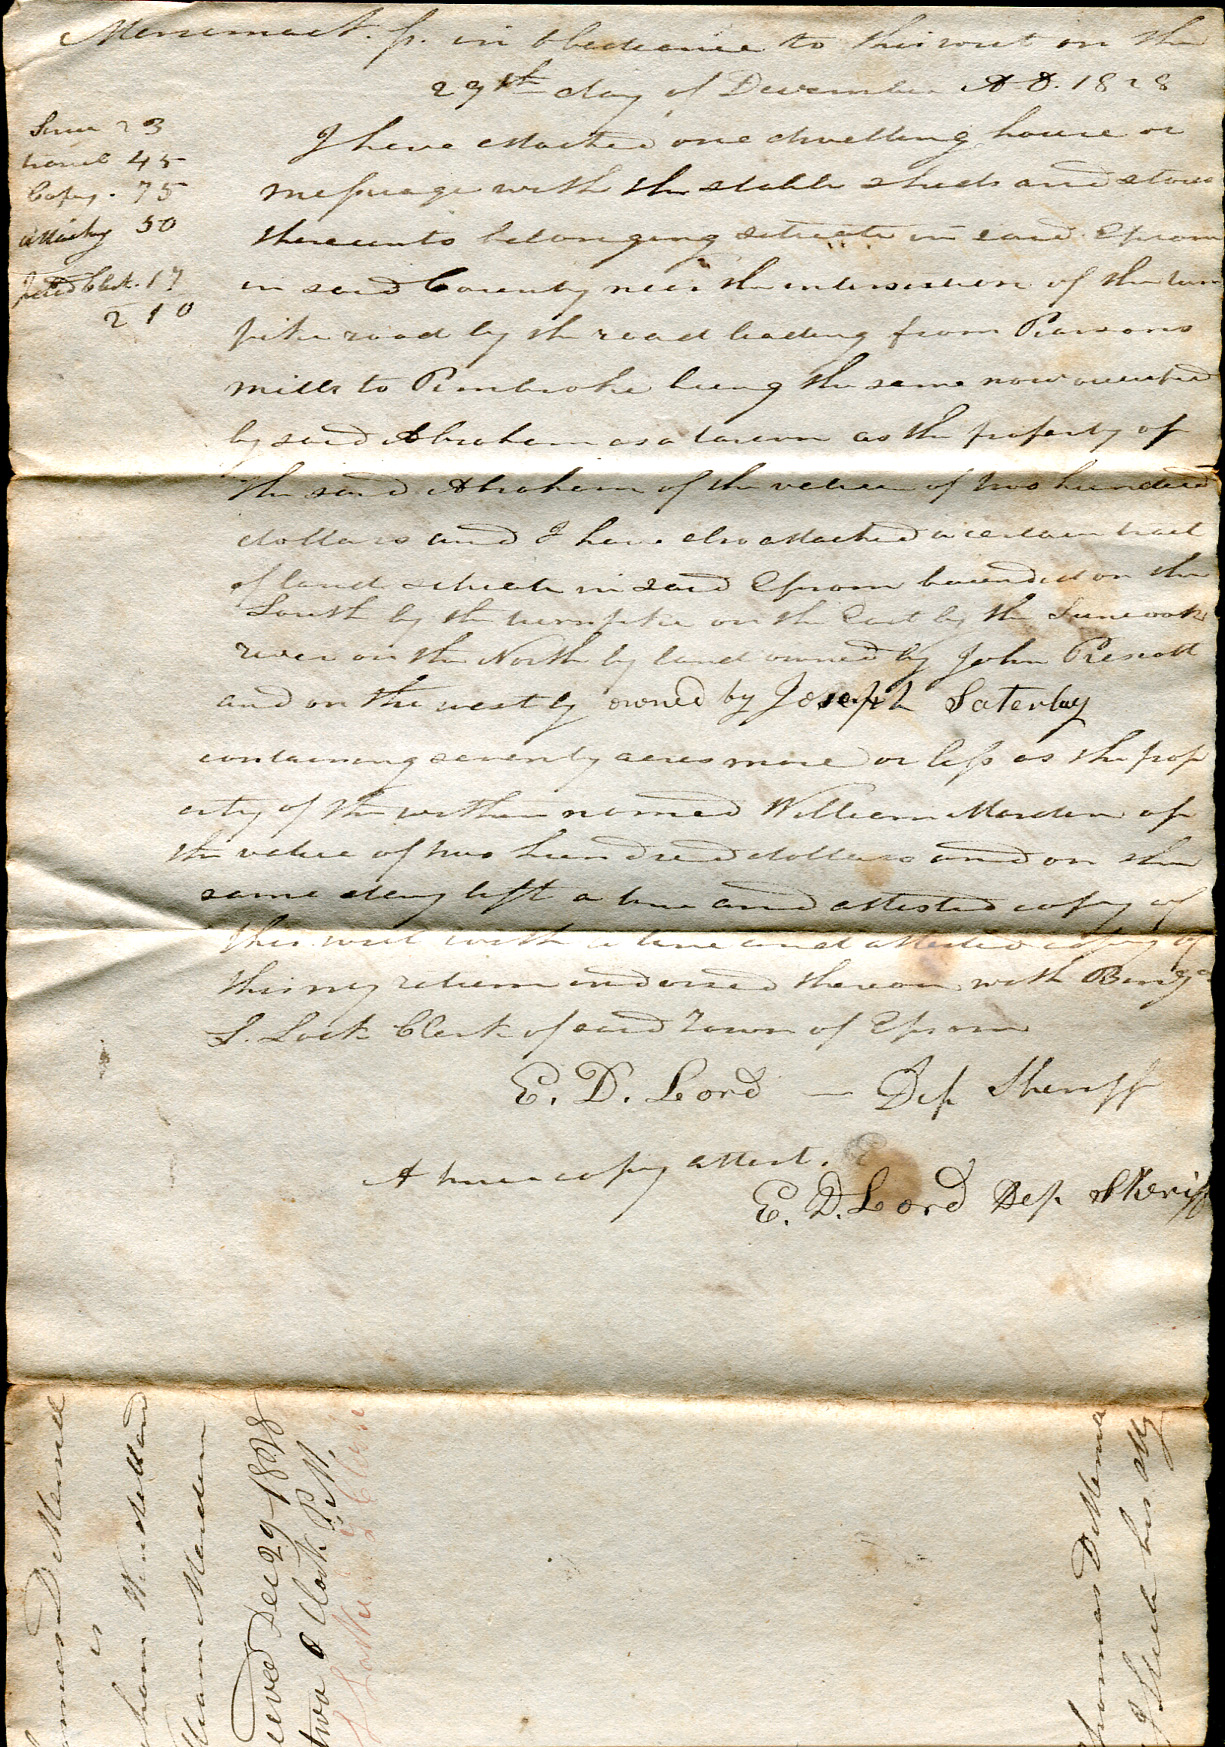 Merrimack ss. in obedience to this writ on the
29th day of December A.D. 1828
I have attached one dwelling house or
messuage with the stable sheds and store
thereunto belonging situate in said Epsom
in said County near the intersection of the turn
pike road by the road leading from Pearsons
mills to Pembroke being the same now occupied
by said Abraham as a tavern as the property of
the said Abraham of the value of two hundred
dollars and I have also attached a certain tract
of land situate in said Epsom bounded on the
South by the turnpike on the East by the Suncook
river on the North by land owned by John Prescott
and on the west by owned by Joseph Saterley
containing seventy acres more or less as the prop
erty of the within named William Marden of
the value of two hundred dollars and on the
same day left a true and attested copy of
this writ with a true and attested copy of
this my return endorsed thereon with Benja
S. Lock Clerk of said Town of Epsom
E. D. Lord — Dep Sheriff
A true copy attest.
E. D. Lord Dep Sheriff
Service 23
travel 45
Copy. 75
attachg 50
Clerk. 17
2 10
D Merrill
vs
Wm
William Marden
Dec 29 1828
two o Clock P.M.
Thomas D Merrill
his Atty